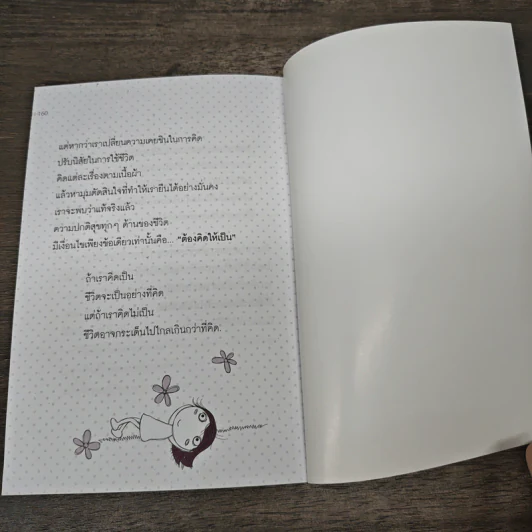 160
แต่หากว่าเราเปลี่ยนความเคยชินในการคิด
ปรับนิสัยในการใช้ชีวิต
คิดแต่ละเรื่องตามเนื้อผ้า
แล้วหามุมตัดสินใจที่ทำให้เรายืนได้อย่างมั่นคง
เราจะพบว่าแท้จริงแล้ว
ความปกติสุขทุกๆ ด้านของชีวิต
มีเงื่อนไขเพียงข้อเดียวเท่านั้นคือ... "ต้องคิดให้เป็น"
ถ้าเราคิดเป็น
ชีวิตจะเป็นอย่างที่คิด
แต่ถ้าเราคิดไม่เป็น
ชีวิตอาจกระเด็นไปไกลเกินกว่าที่คิด.